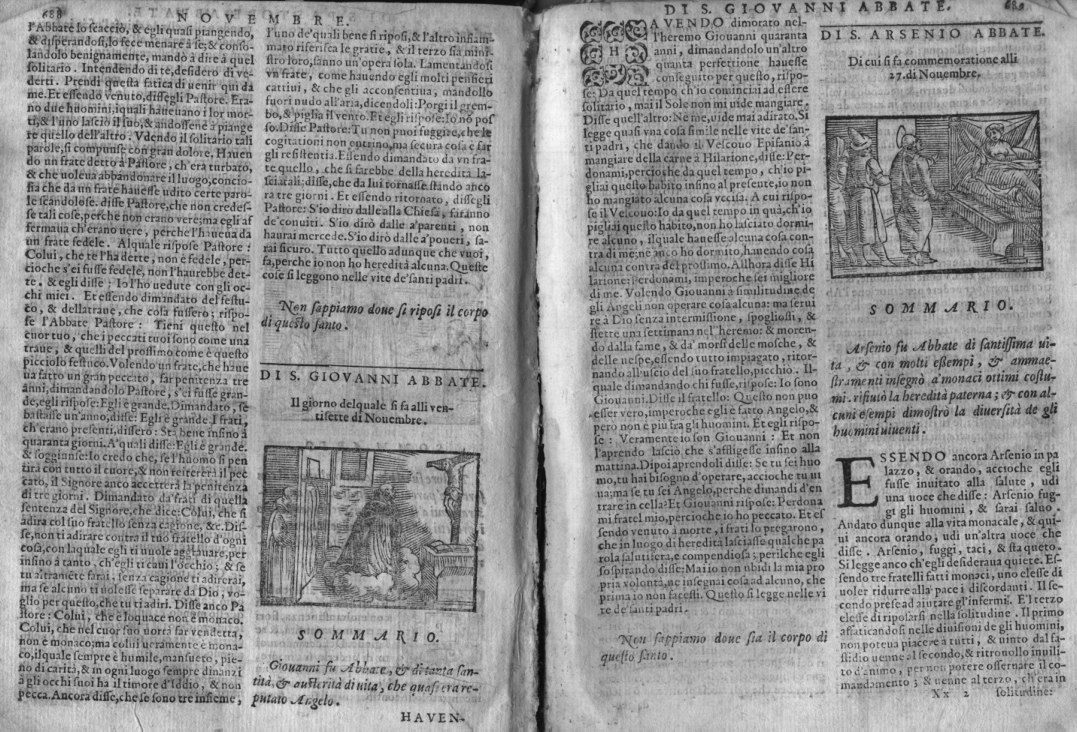 688
NOVEMBRE.
l'Abbate lo scacciò, & egli quasi piangendo,
& disperandosi, lo fece menare à se; & conso-
landolo benignamente, mandò à dire à quel
solitario. Intendendo di te, desidero di ve-
derti. Prendi questa fatica di uenir qui da
me. Et essendo venuto, dissegli Pastore. Era-
no due huomini, iquali haueuano i lor mor-
ti, & l'uno lasciò il suo, & andossene à piange
re quello dell'altro. Vdendo il solitario tali
parole, si compunse con gran dolore. Hauen
do un frate detto à Pastore, ch'era turbato,
& che uoleua abbandonare il luogo, concio-
sia che da un frate hauesse udito certe paro-
le scandolose. disse Pastore, che non credes-
se tali cose, perche non erano vere; ma egli af
fermaua ch'erano uere, perche l'haueua da
un frate fedele. Alquale rispose Pastore:
Colui, che te l'ha dette, non è fedele, per-
cioche s'ei fusse fedele, non l'haurebbe det-
te. & egli disse: Io l'ho uedute con gli oc-
chi miei. Et essendo dimandato del festu-
co, & dellatraue, che cosa fussero; rispo-
se l'Abbate Pastore: Tieni questo nel
cuor tuo, che i peccati tuoi sono come una
traue, & quelli del prossimo come è questo
picciolo festuco. Volendo un frate, che haue
ua fatto un gran peccato, far penitenza tre
anni, dimandandolo Pastore, s'ei fusse gran-
de, egli rispose: Egli è grande. Dimandato, se
bastasse un'anno, disse: Egli è grande. I frati,
ch'erano presenti, dissero: Sta bene insino à
quaranta giorni. A'quali disse: Egli è grande.
& soggiunse: Io credo che, se l'huomo si pen
tirà con tutto il cuore, & non reitererà il pec
cato, il Signore anco accetterà la penitenza
di tre giorni. Dimandato da'frati di quella
sentenza del Signore, che dice: Colui, che si
adira col suo fratello senza cagione, &c. Dis-
se, non ti adirare contra il tuo fratello d'ogni
cosa, con laquale egli ti uuole aggrauare, per
insino à tanto, ch'egli ti caui l'occhio; & se
tu altramēte farai, senza cagione ti adirerai,
ma se alcuno ti uolesse separare da Dio, vo-
glio per questo, che tu ti adiri. Disse anco Pa
store: Colui, che è loquace non è monaco.
Colui, che nel cuor suo uorrà far vendetta,
non è monaco; ma colui ueramente è mona-
co, il quale sempre è humile, mansueto, pie-
no di carità, & in ogni luogo sempre dinanzi
à gli occhi suoi ha il timore d'Iddio, & non
pecca. Ancora disse, che se sono tre insieme,
l'uno de'quali bene si riposi, & l'altro infiam-
mato riferisca le gratie, & il terzo sia mini-
stro loro, fanno un'opera sola. Lamentandosi
vn frate, come hauendo egli molti pensieri
cattiui, & che gli acconsentiua, mandollo
fuori nudo all'aria, dicendoli: Porgi il grem-
bo, & piglia il vento. Et egli rispose: Io nō pos
so. Disse Pastore: Tu non puoi fuggire, che le
cogitationi non entrino, ma secura cosa è far
gli resistentia. Essendo dimandato da vn fra-
te quello, che si farebbe della heredità la-
sciatali: disse, che da lui tornasse stando anco
ra tre giorni. Et essendo ritornato, dissegli
Pastore: S'io dirò dalle alla Chiesa, faranno
de'conuiti. S'io dirò dalle a'parenti, non
haurai mercede. S'io dirò dalle a'poueri, sa-
rai sicuro. Tutto quello adunque che vuoi,
fa, perche io non ho heredità alcuna. Queste
cose si leggono nelle vite de'santi padri.
Non sappiamo doue si riposi il corpo
di questo santo.
DI S. GIOVANNI ABBATE.
Il giorno delquale si fa alli ven-
tisette di Nouembre.
SOMMARIO.
Giouanni fu Abbate, & di tanta san-
tità, & austerità di uita, che quasi era re-
putato Angelo.
HAVEN-
DI S. GIOVANNI ABBATE.
HAVENDO dimorato nel-
l'heremo Giouanni quaranta
anni, dimandandolo un'altro
quanta perfettione hauesse
conseguito per questo, rispo-
se: Da quel tempo ch'io cominciai ad essere
solitario, mai il Sole non mi uide mangiare.
Disse quell'altro: Ne me, uide mai adirato. Si
legge quasi vna cosa simile nelle vite de'san-
ti padri, che dando il Vescouo Epifanio à
mangiare della carne à Hilarione, disse: Per-
donami, percioche da quel tempo, ch'io pi-
gliai questo habito insino al presente, io non
ho mangiato alcuna cosa vccisa. A cui rispo-
se il Vescouo: Io da quel tempo in quà, ch'io
pigliai questo habito, non ho lasciato dormi-
re alcuno, ilquale hauesse alcuna cosa con-
tra di me; ne anco ho dormito, hauendo cosa
alcuna contra del prossimo. Allhora disse Hi
larione: Perdonami, imperoche sei migliore
di me. Volendo Giouanni à similitudine de
gli Angeli non operare cosa alcuna: ma serui
re à Dio senza intermissione, spogliossi, &
stette una settimana nel'heremo: & moren-
do dalla fame, & da' morsi delle mosche, &
delle uespe, essendo tutto impiagato, ritor-
nando all'uscio del suo fratello, picchiò. Il-
quale dimandando chi fusse, rispose: Io sono
Giouanni. Disse il fratello: Questo non può
esser vero, imperoche egli è fatto Angelo, &
però non è più fra gli huomini. Et egli rispo-
se: Veramente io son Giouanni: Et non
l'aprendo lasciò che s'affligesse insino alla
mattina. Dipoi aprendoli disse: Se tu sei huo
mo, tu hai bisogno d'operare, acciochè tu ui
ua; ma se tu sei Angelo, perche dimandi d'en
trare in cella? Et Giouanni rispose: Perdona
mi fratel mio, percioche io ho peccato. Et es
sendo venuto à morte, i frati lo pregarono,
che in luogo di heredità lasciasse qualche pa
rola salutifera, e compendiosa; perilche egli
sospirando disse: Mai io non ubidì la mia pro
pria volontà, ne insegnai cosa ad alcuno, che
prima io non facessi. Questo si legge nelle vi
te de'santi padri.
Non sappiamo doue sia il corpo di
questo santo.
DI S. ARSENIO ABBATE.
Di cui si fa commemoratione alli
27. di Nouembre.
SOMMARIO.
Arsenio fu Abbate di santissima ui-
ta, & con molti essempi, & ammae-
stramenti insegnò a'monaci ottimi costu-
mi. rifiutò la heredità paterna; & con al-
cuni esempi dimostrò la diuersità de gli
huomini uiuenti.
ESSENDO ancora Arsenio in pa
lazzo, & orando, accioche egli
fusse inuitato alla salute, udì
una uoce che disse: Arsenio fug-
gi gli huomini, & sarai saluo.
Andato dunque alla vita monacale, & qui-
ui ancora orando; udì un'altra uoce che
disse. Arsenio, fuggi, taci, & sta queto.
Si legge anco ch'egli desideraua quiete. Es-
sendo tre fratelli fatti monaci, uno elesse di
uoler ridurre alla pace i discordanti. Il se-
condo prese ad aiutare gl'infermi. E'l terzo
elesse di riposarsi nella solitudine. Il primo
affaticandosi nelle diuisioni de gli huomini,
non poteua piacere à tutti, & uinto dal fa-
stidio uenne al secondo, & ritrouollo inuili-
to d'animo, per non potere osseruare il co-
mandamento; & uenne al terzo, ch'era in
Xx 2 solitudine: